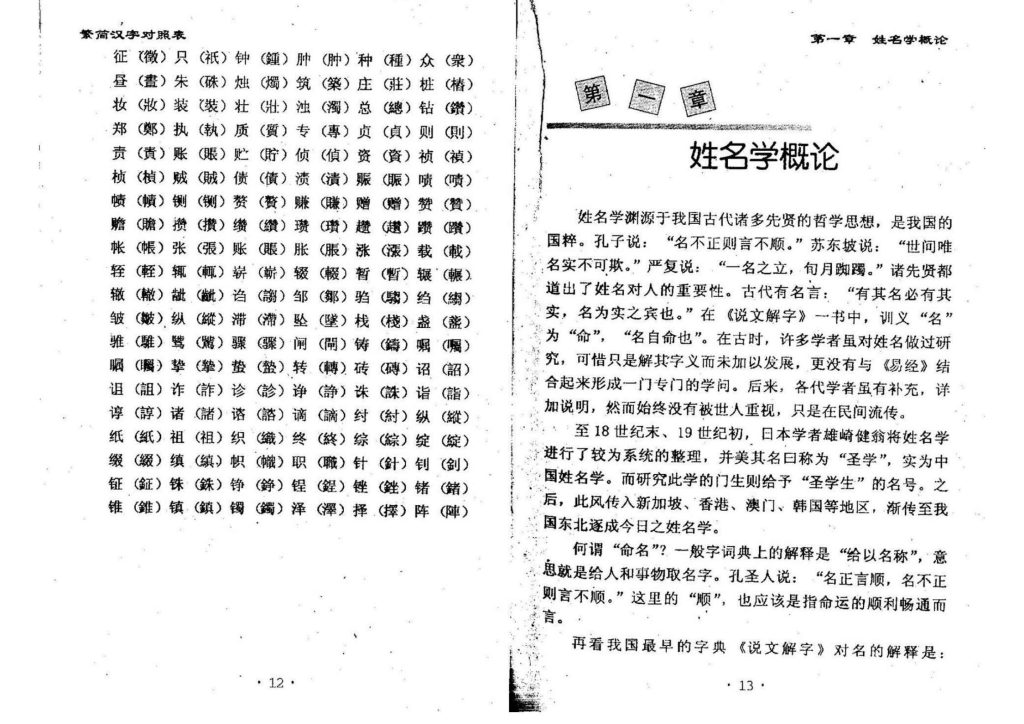 繁简汉字对照表
征（徵）只（祇）钟（鍾）肿（肿）种（種）众（衆）
昼（晝）朱（硃）烛（燭）筑（築）庄（莊）桩（樁）
妆（妝）装（裝）壮（壯）浊（濁）总（總）钻（鑽）
郑（鄭）执（執）质（質）专（專）贞（貞）则（則）
责（責）账（賬）贮（貯）侦（偵）资（資）祯（禎）
桢（楨）贼（賊）债（債）渍（漬）赈（賑）啧（嘖）
帻（幘）铡（鍘）赘（贅）赚（賺）赠（贈）赞（贊）
赡（贍）攒（攢）缵（纘）瓒（瓚）趱（趲）躜（躦）
帐（帳）张（張）账（賬）胀（脹）涨（漲）载（載）
轾（輊）辄（輒）崭（嶄）辍（輟）暂（暫）辗（輾）
辙（轍）龇（齜）诌（謅）邹（鄒）驺（騶）绉（縐）
皱（皺）纵（縱）滞（滯）坠（墜）栈（棧）盏（盞）
骓（騅）骘（騭）骤（驟）闸（閘）铸（鑄）嘱（囑）
瞩（矚）挚（摯）蛰（蟄）转（轉）砖（磚）诏（詔）
诅（詛）诈（詐）诊（診）诤（諍）诛（誅）诣（詣）
谆（諄）诸（諸）谘（諮）谪（謫）纣（紂）纵（縱）
纸（紙）祖（祖）织（織）终（終）综（綜）绽（綻）
缀（綴）缜（縝）帜（幟）职（職）针（針）钊（釗）
钲（鉦）铢（銖）铮（錚）锃（鋥）锉（銼）锗（鍺）
锥（錐）镇（鎮）镯（鐲）泽（澤）择（擇）阵（陣）
·12·
第一章 姓名学概论
第一章
姓名学概论
姓名学渊源于我国古代诸多先贤的哲学思想，是我国的
国粹。孔子说：“名不正则言不顺。”苏东坡说：“世间唯
名实不可欺。”严复说：“一名之立，旬月踟躅。”诸先贤都
道出了姓名对人的重要性。古代有名言：“有其名必有其
实，名为实之宾也。”在《说文解字》一书中，训义“名”
为“命”，“名自命也”。在古时，许多学者虽对姓名做过研
究，可惜只是解其字义而未加以发展，更没有与《易经》结
合起来形成一门专门的学问。后来，各代学者虽有补充，详
加说明，然而始终没有被世人重视，只是在民间流传。
至18世纪末、19世纪初，日本学者雄崎健翁将姓名学
进行了较为系统的整理，并美其名曰称为“圣学”，实为中
国姓名学。而研究此学的门生则给予“圣学生”的名号。之
后，此风传入新加坡、香港、澳门、韩国等地区，渐传至我
国东北逐成今日之姓名学。
何谓“命名”？一般字词典上的解释是“给以名称”，意
思就是给人和事物取名字。孔圣人说：“名正言顺，名不正
则言不顺。”这里的“顺”，也应该是指命运的顺利畅通而
言。
再看我国最早的字典《说文解字》对名的解释是：
·13·